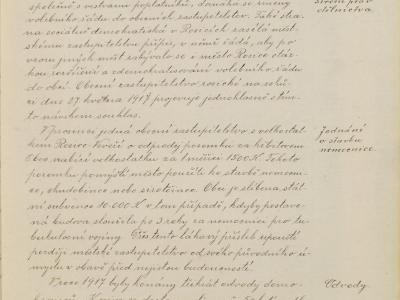 společně s ostatními poplatníky, domáhá se změny
volebního řádu do obecních zastupitelstev. Také stra-
na sociálně demokratická v Rosicích zaslala měst-
skému zastupitelstvu přípis, v němž žádá, aby po
vzoru jiných míst zabývalo se i město Rosice otáz-
kou rozšíření a zdemokratisování volebního řádu
do obcí. Obecní zastupitelstvo rosické na schů-
zi dne 27. května 1917 projevuje jednohlasně s tím-
to návrhem souhlas.
V prosinci jedná obecní zastupitelstvo s velkostat-
kem Rosice
o odprodej pozemku za hřbitovem.
Obec nabízí velkostatku za 1 měřici 1500 K. Tohoto
pozemku pomýšlí město použíti ke stavbě nemocni-
ce, chudobince nebo sirotčince. Obci je slíbena stát-
ní subvence 10.000 K v tom případě, kdyby postave-
ná budova sloužila po 3 roky za nemocnici pro tu-
berkulosní vojíny. Přes tento lákavý příslib upouští
později městské zastupitelstvo od svého původního ú-
myslu v obavě před nejistou budoucností.
V roce 1917 byly konány tikrát odvody domo-
Jednání
o stavbu
nemocnice.
Odvody.